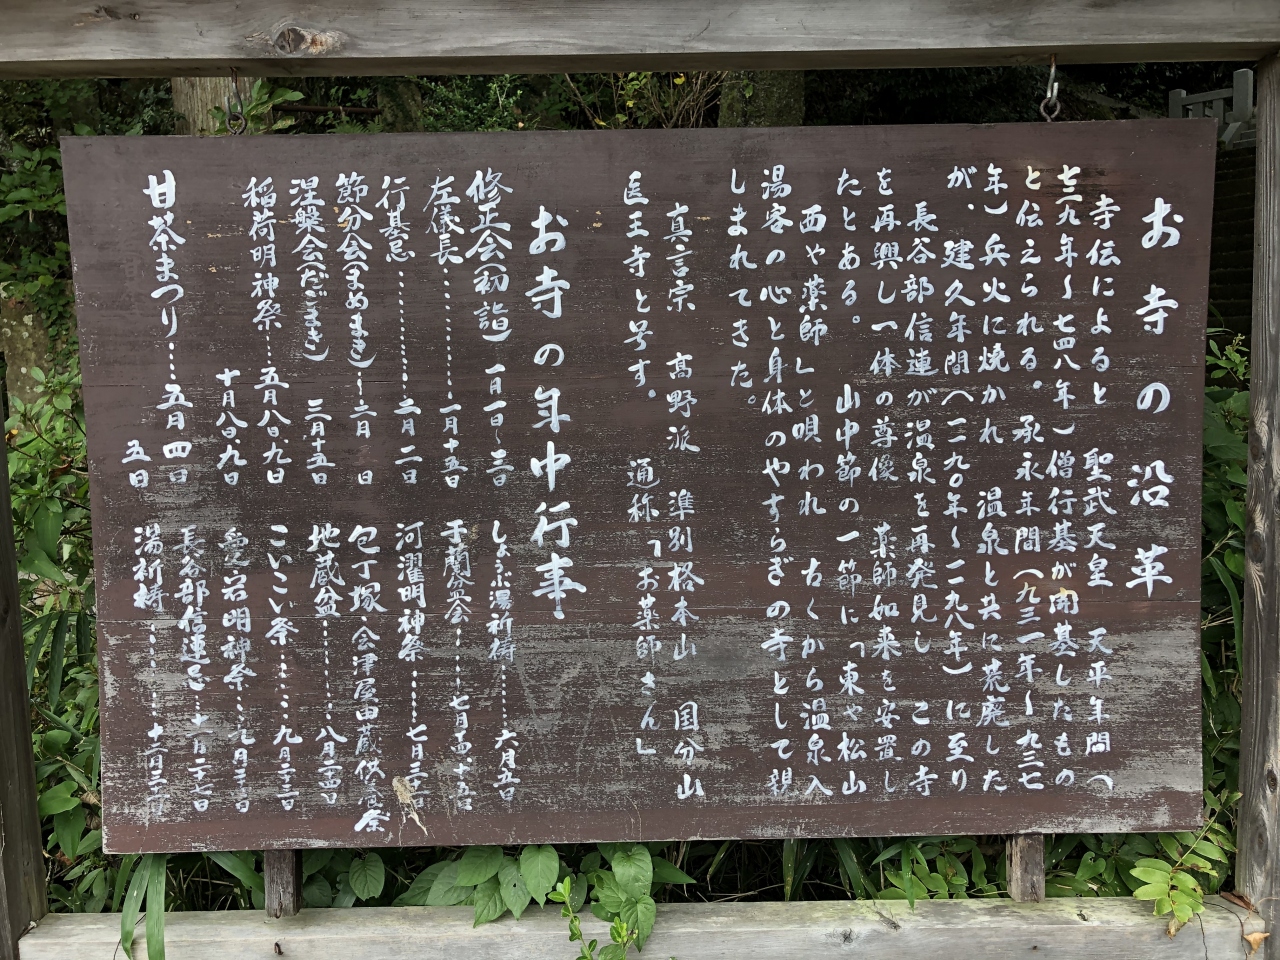 お寺の沿革
寺伝によると 聖武天皇 天平年間(
七二九年〜七四八年)僧行基が開基したもの
と伝えられる。承永年間(九三一年〜九三七
年)兵火に焼かれ 温泉と共に荒廃した
が、建久年間(一一九〇年〜一一九八年)に至り
長谷部信連が温泉を再発見し この寺
を再興し一体の尊像 薬師如来を安置し
たとある。 山中節の一節に「東や松山
西や薬師」と唄われ 古くから温泉入
湯客の心と身体のやすらぎの寺として親
しまれてきた。
真言宗 高野派 準別格本山 国分山
医王寺と号す。 通称「お薬師さん」
お寺の年中行事
修正会(初詣)一月一日〜三日
左儀長……………一月十五日
行基忌……………二月二日
節分会(まめまき)〜二月 日
涅槃会(だごまき) 三月十五日
稲荷明神祭……五月八日、九日
十月八日、九日
甘茶まつり……五月四日
五日
しょうぶ湯祈祷………六月五日
于蘭盆会………七月 、十五日
河濯明神祭………七月 日
包丁塚・会津屋由蔵供養祭
地蔵盆………八月二四日
こいこい祭………九月二三日
愛宕明神祭……九月 日
長谷部信連忌……十月二七日
湯祈祷………十二月 日